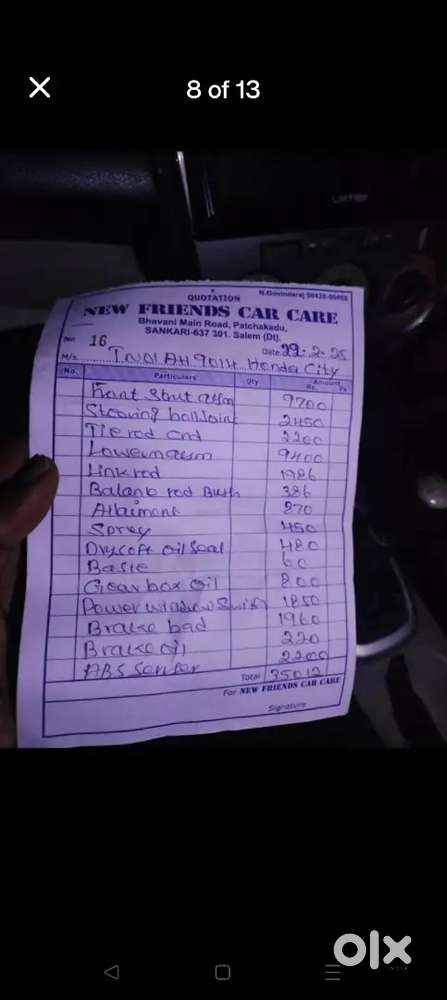 8 of 13
QUOTATION
N.Govindaraj
NEW FRIENDS CAR CARE
Bhavani Main Road, Patchakadu,
SANKARI-637 301. Salem (Dt).
No 16 Date
M/s. TN01 AH 9014 Honda City
No. Particulars Qty Amount
Rs. Ps
Front Strut arm 9700
Stearing ball Joint 2450
Tie rod end 2200
Lower arm 9400
Link rod 1986
Balanb rod Bush 386
Allaiment 870
Sprey 450
Oil Seal 480
60
Gear box oil 800
Power window 1850
Brake bad 1960
Brake oil 220
ABS Senser 2200
Total 35012
For NEW FRIENDS CAR CARE
Signature
olx
INDIA